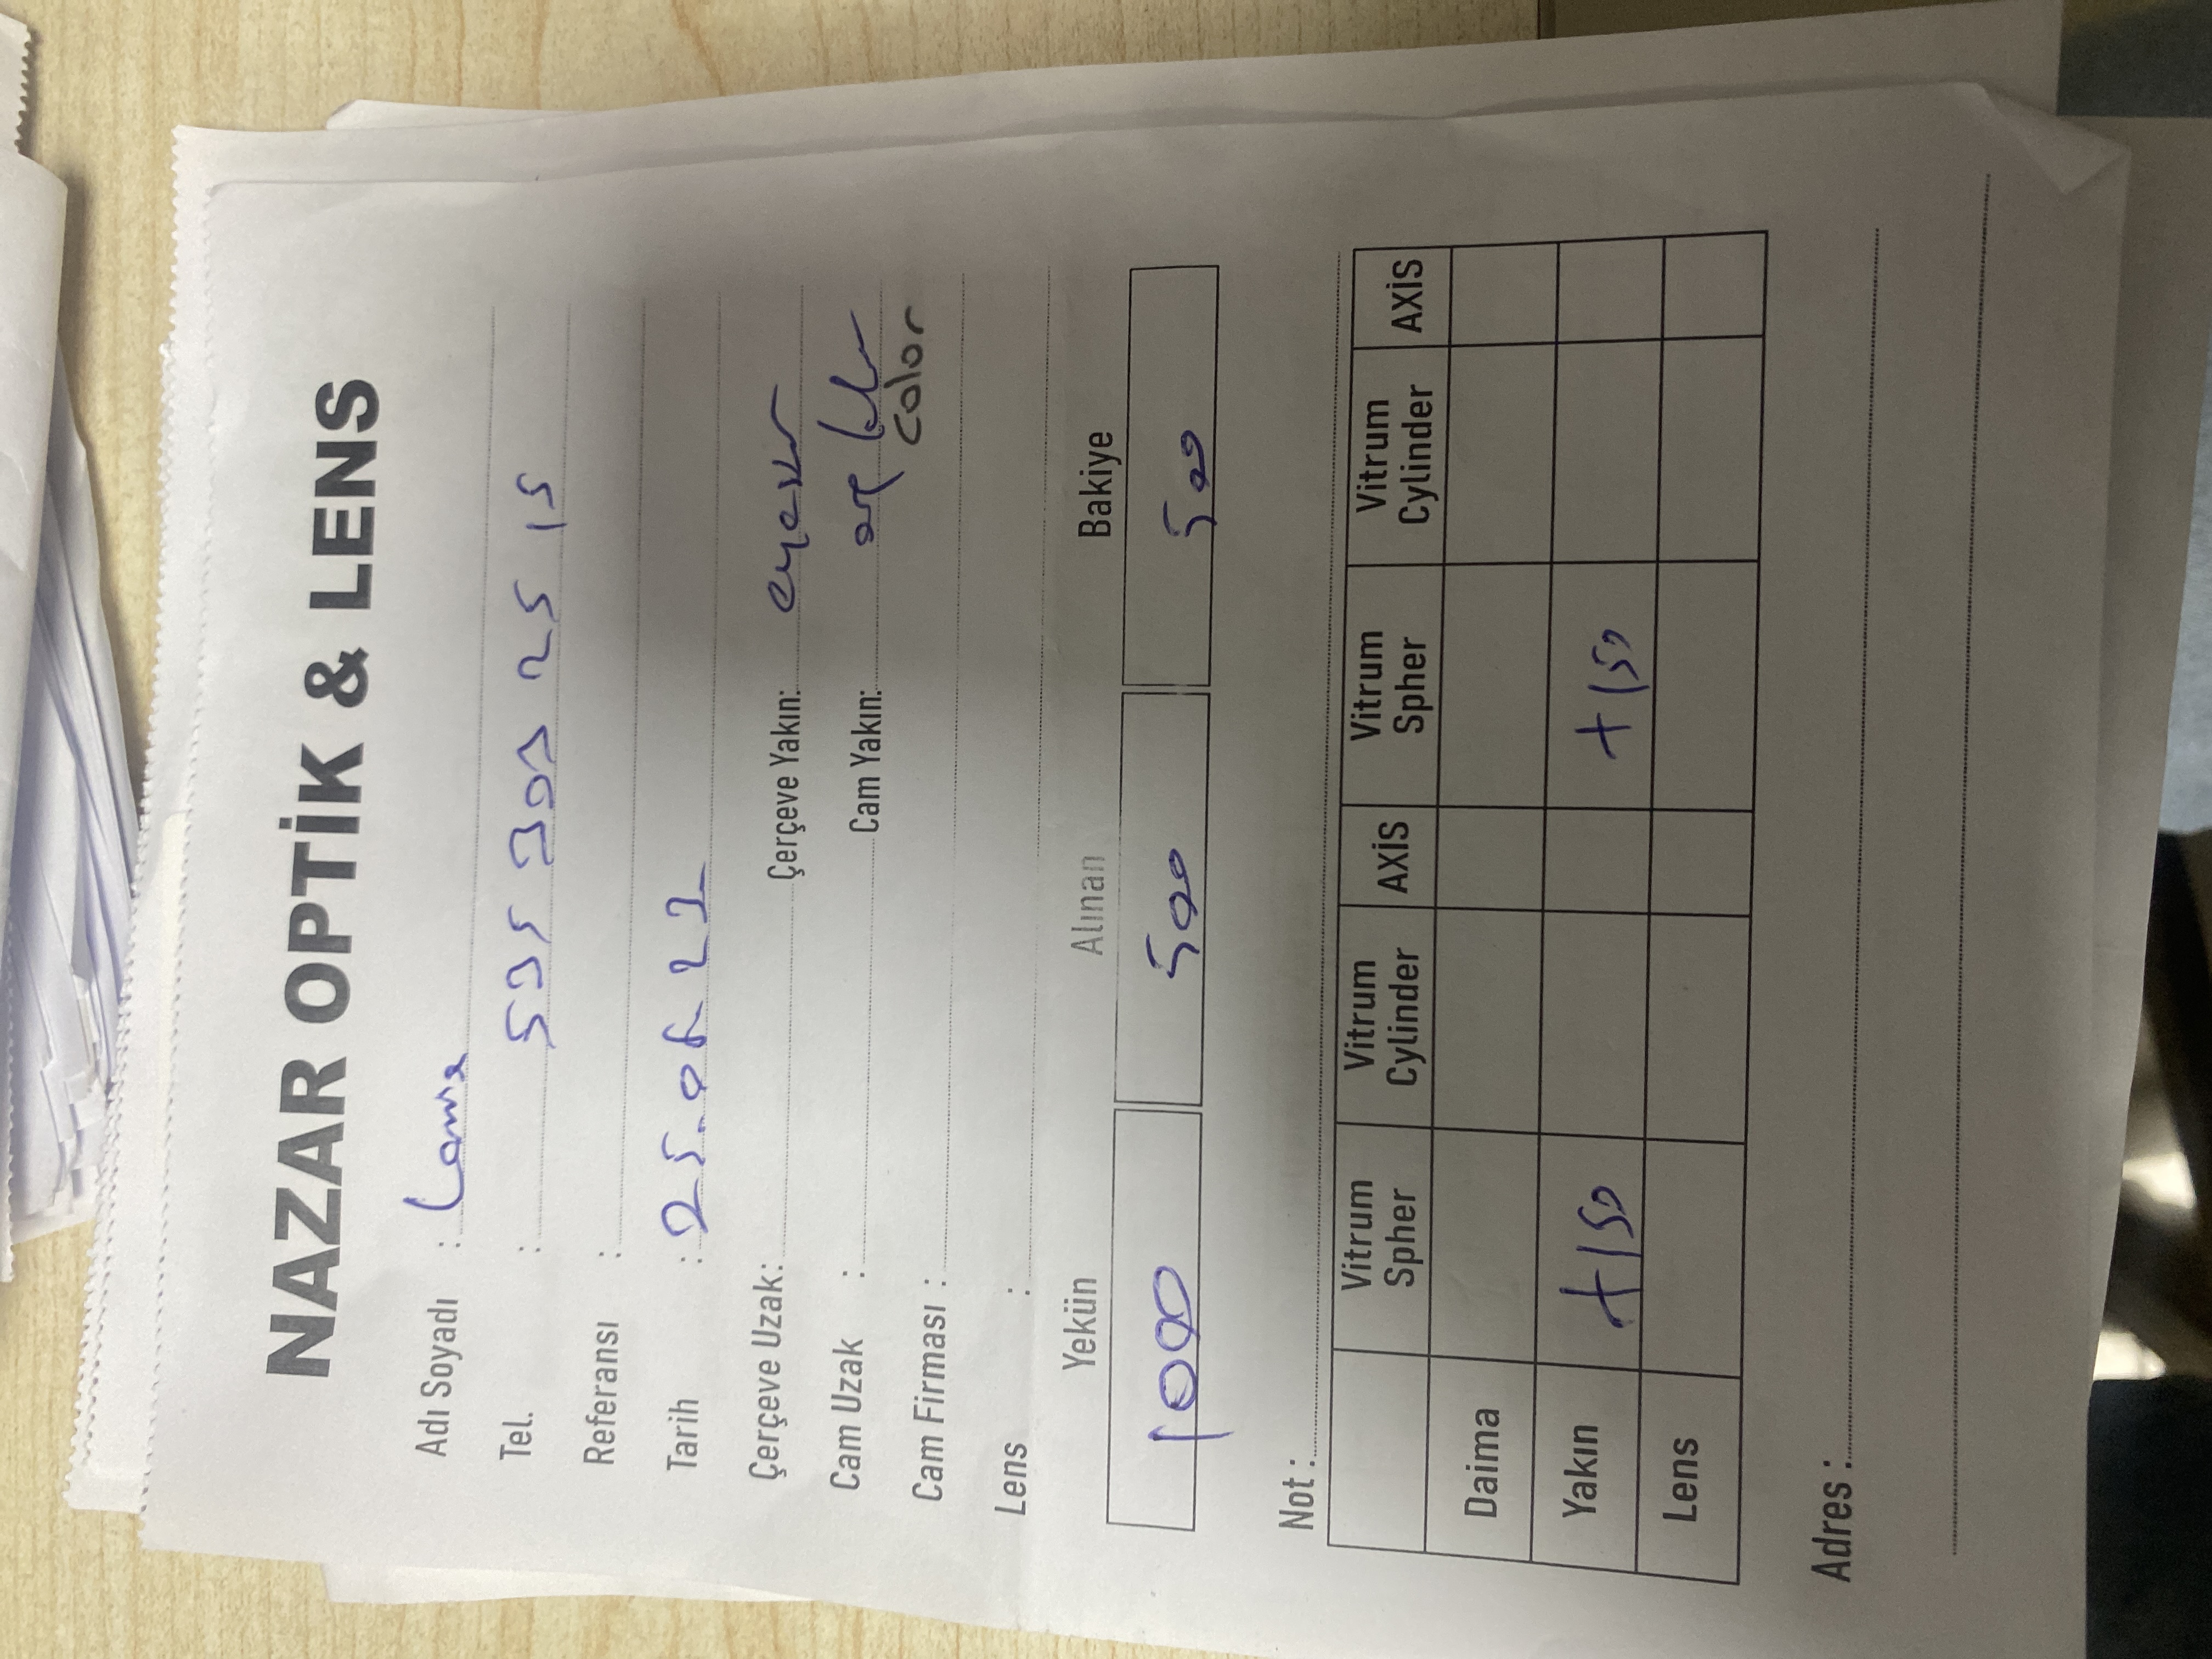 NAZAR OPTİK & LENS
Adı Soyadı :
Tel. : 535 303 25 15
Referansı :
Tarih : 25.08.22
Çerçeve Uzak: Çerçeve Yakın:
Cam Uzak : Cam Yakın:
color
Cam Firması :
Lens :
Yekün Alınan Bakiye
1000 500 500
Not :
Vitrum Spher Vitrum Cylinder AXİS Vitrum Spher Vitrum Cylinder AXİS
Daima
Yakın +150 +150
Lens
Adres :